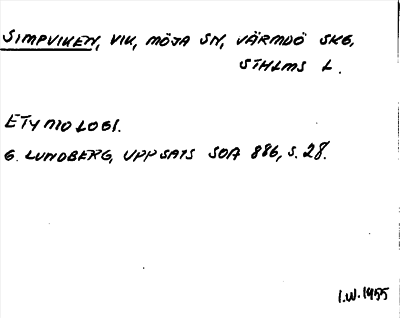 SIMPVIKEN, VIK, MÖJA SN, VÄRMDÖ SKG,
STHLMS L.
ETYMOLOGI.
G. LUNDBERG, UPPSATS SOA 886, S. 28.
I.W. 1955